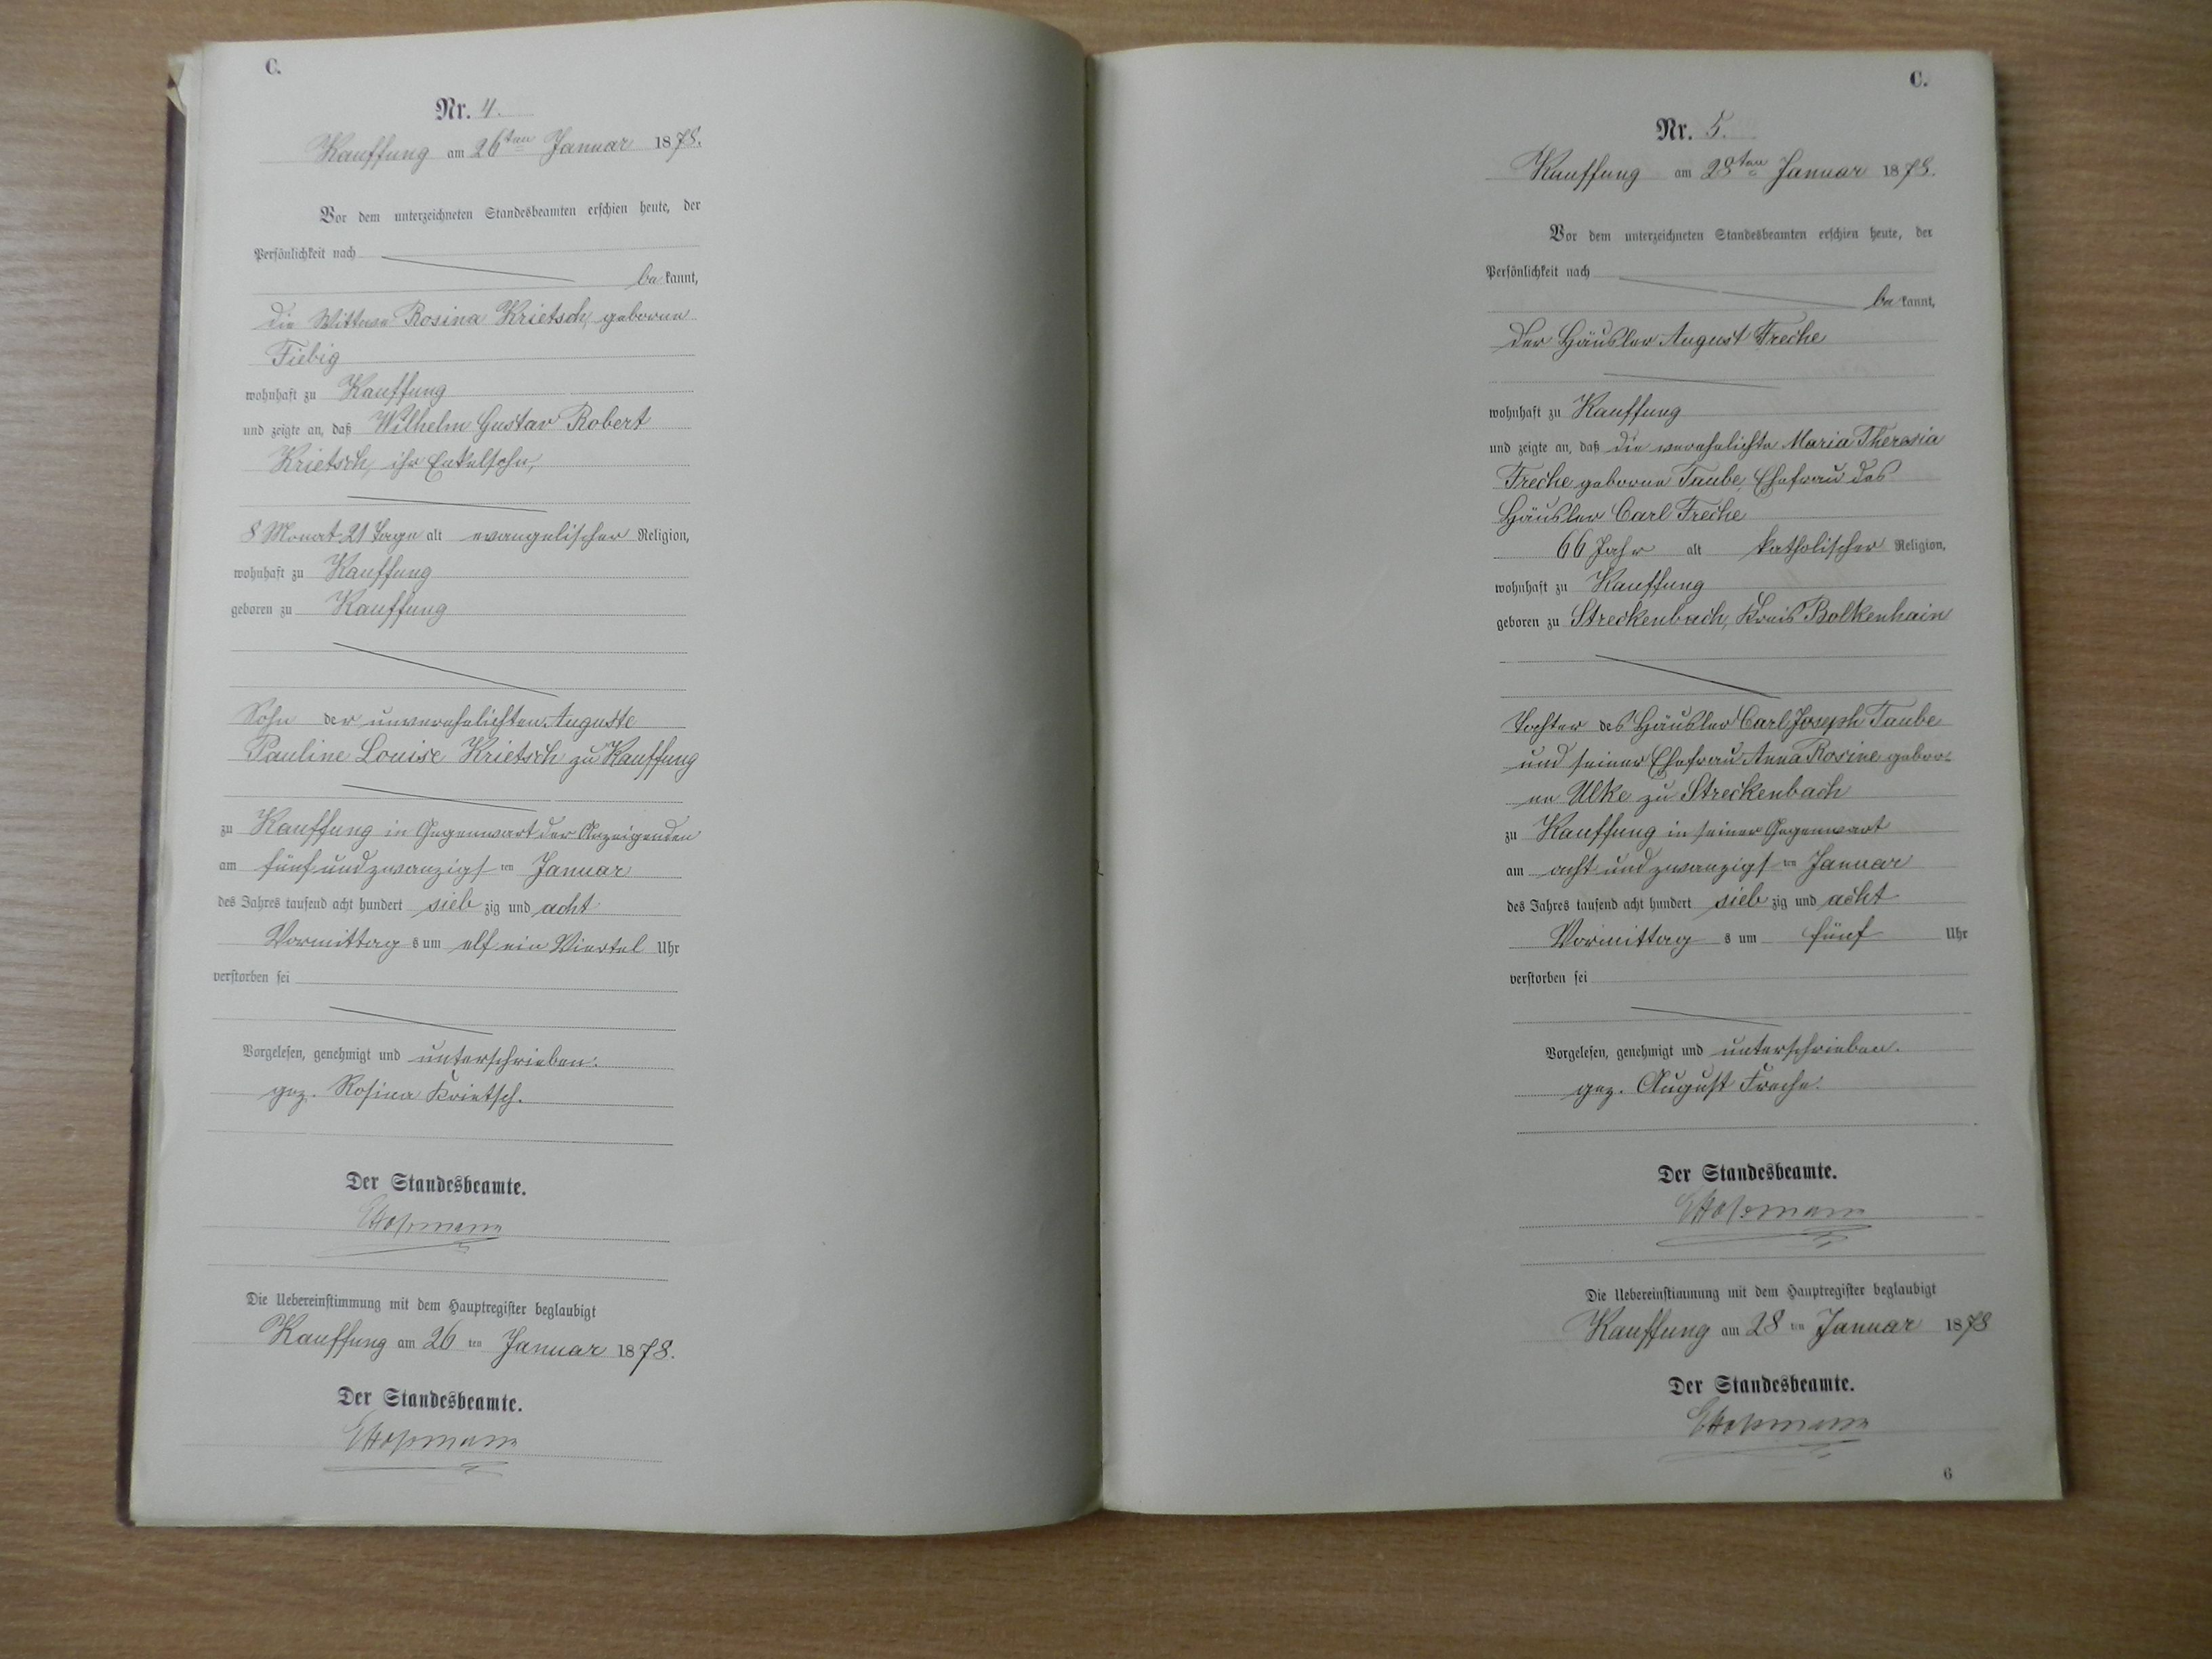 C.
Nr. 4.
Kauffung am 26ten Januar 1878.
Vor dem unterzeichneten Standesbeamten erschien heute, der
Persönlichkeit nach
be kannt,
die Wittwe Rosina Krietsch, geborne
Fiebig
wohnhaft zu Kauffung
und zeigte an, daß Wilhelm Gustav Robert
Krietsch, ihr Enkelsohn,
8 Monat 21 Tage alt evangelischer Religion,
wohnhaft zu Kauffung
geboren zu Kauffung
Sohn der unverehelichten Auguste
Pauline Louise Krietsch zu Kauffung
zu Kauffung in Gegenwart der Anzeigenden
am fünf und zwanzigs ten Januar
des Jahres tausend acht hundert sieb zig und acht
Vormittag s um elf ein Viertel Uhr
verstorben sei
Vorgelesen, genehmigt und unterschrieben.
gez. Rosina Krietsch.
Der Standesbeamte.
Die Uebereinstimmung mit dem Hauptregister beglaubigt
Kauffung am 26 ten Januar 1878.
Der Standesbeamte.
C.
Nr. 5.
Kauffung am 28ten Januar 1878.
Vor dem unterzeichneten Standesbeamten erschien heute, der
Persönlichkeit nach
be kannt,
der Häusler August Freche
wohnhaft zu Kauffung
und zeigte an, daß die verehelichte Maria Theresia
Freche geborne Taube, Ehefrau des
Häusler Carl Freche
66 Jahr alt katholischer Religion,
wohnhaft zu Kauffung
geboren zu Streckenbach, Kreis Bolkenhain
Tochter des Häusler Carl Joseph Taube
und seiner Ehefrau Anna Rosine gebor-
ne Ulke zu Streckenbach
zu Kauffung in seiner Gegenwart
am acht und zwanzigs ten Januar
des Jahres tausend acht hundert sieb zig und acht
Vormittag s um fünf Uhr
verstorben sei
Vorgelesen, genehmigt und unterschrieben.
gez. August Freche.
Der Standesbeamte.
Die Uebereinstimmung mit dem Hauptregister beglaubigt
Kauffung am 28 ten Januar 1878
Der Standesbeamte.
6